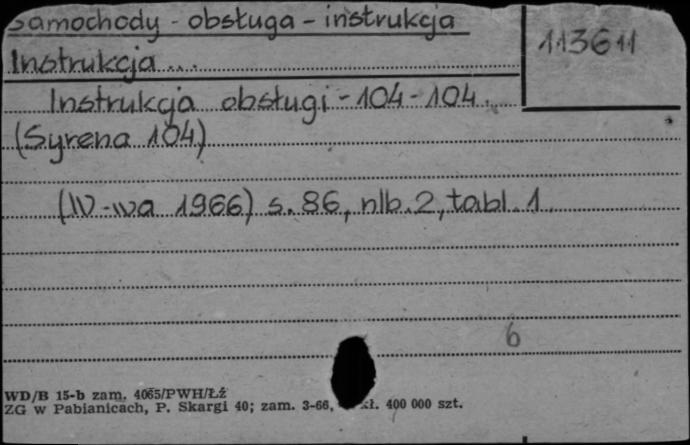 Samochody - obsługa - instrukcja
113611
Instrukcja ...
Instrukcja obsługi - 104 - 104.
(Syrena 104)
(W-wa 1966) s. 86, nlb. 2, tabl. 1
6
WD/B 15-b zam. 4065/PWH/Łż
ZG w Pabianicach, P. Skargi 40; zam. 3-66, 400 000 szt.